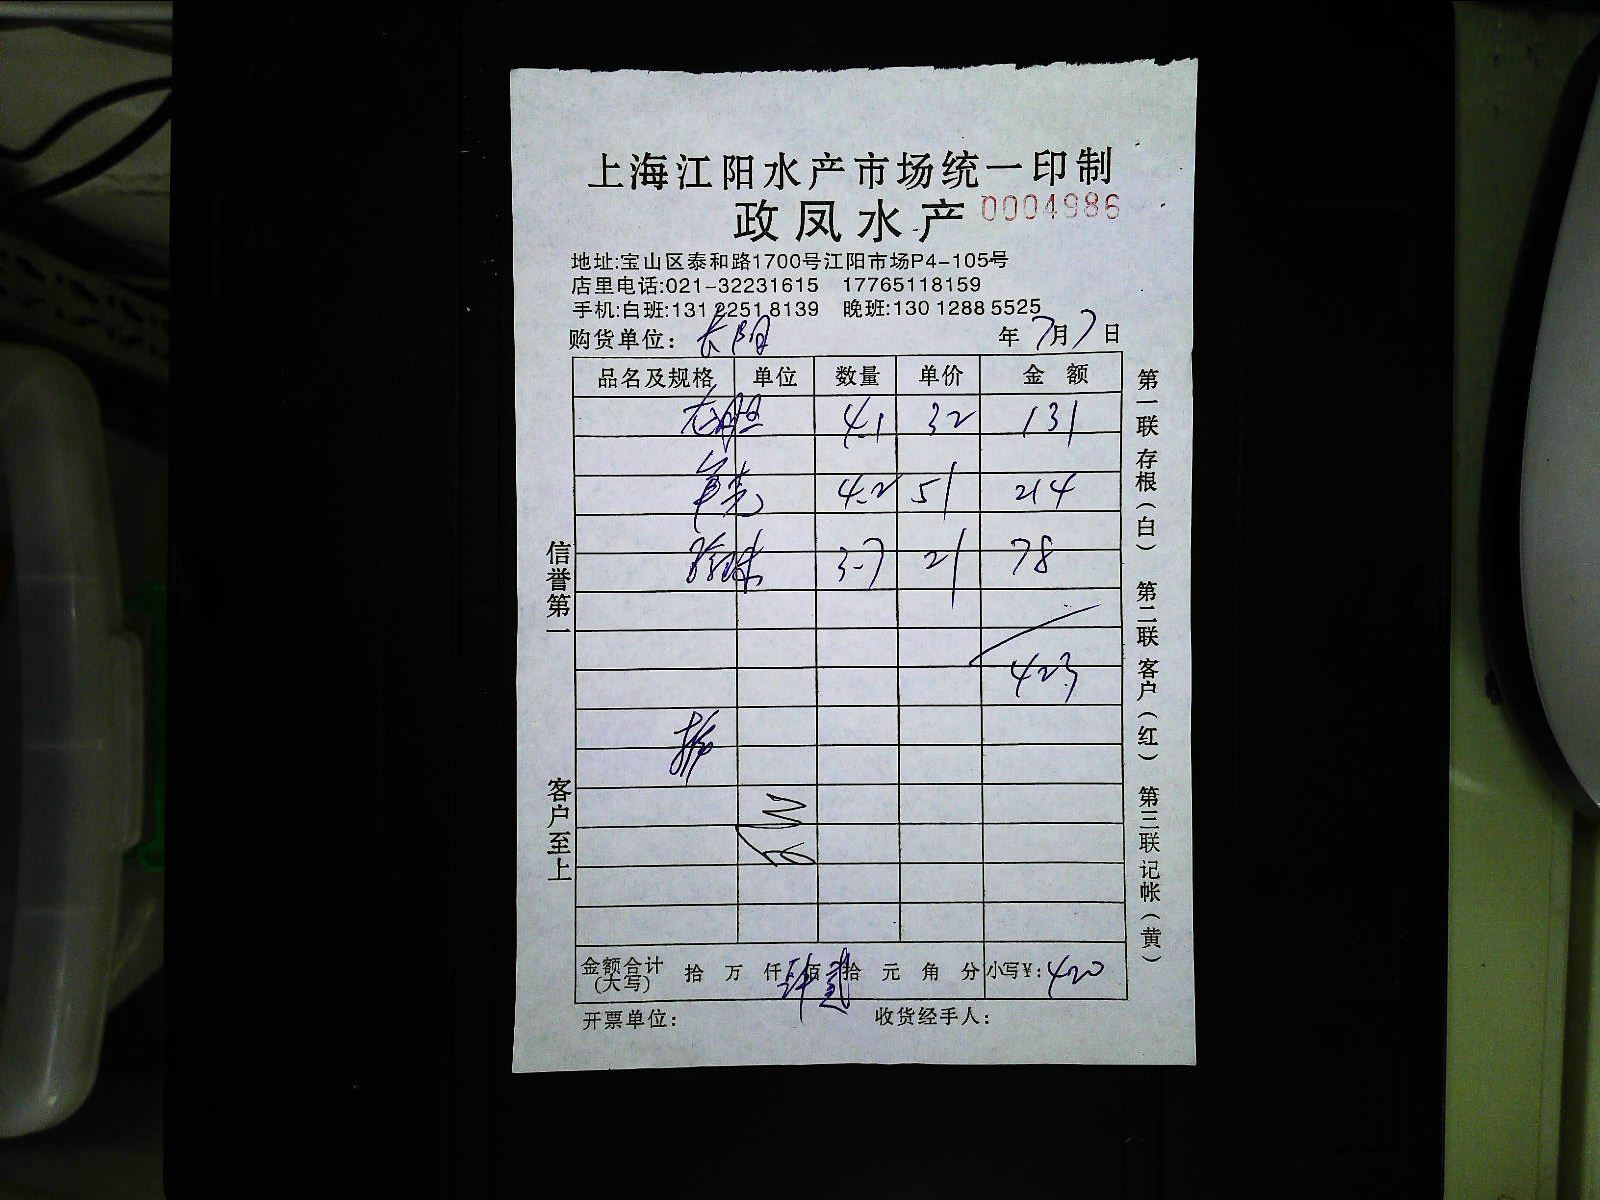 上海江阳水产市场统一印制
政凤水产 0004986
地址:宝山区泰和路1700号江阳市场P4-105号
店里电话:021-32231615 17765118159
手机:白班:131 2251 8139 晚班:130 1288 5525
购货单位: 长阳 年 7月7日
品名及规格 单位 数量 单价 金额
4.1 32 131
4.2 51 214
3.7 21 78
423
金额合计(大写) 拾 万 仟 肆佰 贰拾 元 角 分 小写¥: 420
开票单位: 收货经手人:
信誉第一 客户至上
第一联存根(白) 第二联客户(红) 第三联记帐(黄)